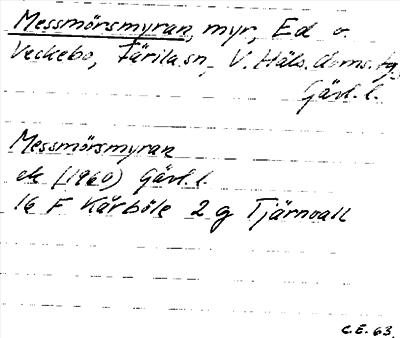 Messmörsmyran, myr, Ed o.
Veckebo, Färila sn, V. Häls. doms. tg,
Gävl. l.
Messmörsmyran
ek (1960) Gävl. l.
16 F Kårböle 2 g Tjärnvall
C.E. 63.